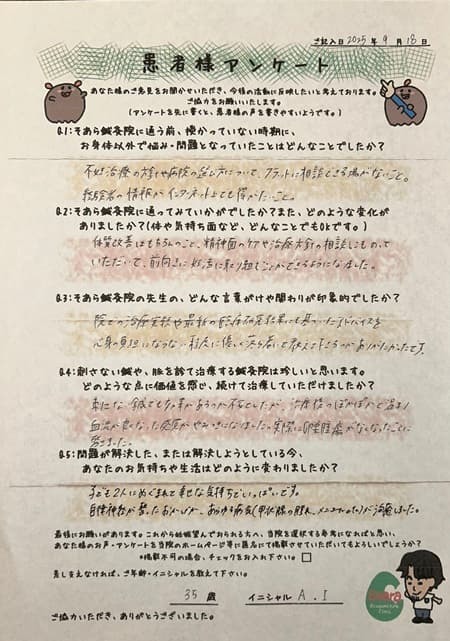 ご記入日 2025年 9月 18日
患者様アンケート
あなた様のご意見をお聞かせいただき、今後の活動に反映したいと考えております。
ご協力をお願いいたします。
(アンケートを先に書くと、患者様の声を書きやすいようです。)
Q.1:そあら鍼灸院に通う前、授かっていない時期に、
お身体以外で悩み・問題となっていたことはどんなことでしたか?
不妊治療の方針や病院の選び方について、フラットに相談できる場がないこと。
経験者の情報がインターネット上でも偏かいこと。
Q.2:そあら鍼灸院に通ってみていかがでしたか?また、どのような変化が
ありましたか?(体や気持ち面など、どんなことでもOKです。)
体質改善はもちろんのこと、精神面のケアや治療方針の相談にものって
いただいて、前向きに妊活に取り組むことができるようになりました。
Q.3:そあら鍼灸院の先生の、どんな言葉がけや関わりが印象的でしたか?
院での治療実績や最新の臨床研究結果にも基づいたアドバイスを
心身の負担にならない程度に優しく教えて下さるところがありがたかったです。
Q.4:刺さない鍼や、脈を診て治療する鍼灸院は珍しいと思います。
どのような点に価値を感じ、続けて治療していただけましたか?
刺さない鍼でも効果があるのか不安でしたが、治療後のぽかぽかと温まり
血流が良くなった感覚がやみつきになりました。実際に卵巣腫瘍がなくなったことに
驚きました。
Q.5:問題が解決した、または解決しようとしている今、
あなたのお気持ちや生活はどのように変わりましたか?
子ども2人にめぐまれて幸せな気持ちでいっぱいです。
自律神経が整ったおかげか、あらゆる病気(甲状腺の腫れ、)が治癒しました。
最後にお願いがあります。これから妊娠望んでおられる方へ、当院を選択する参考になればと思い、
あなた様のお声・アンケートを当院のホームページ等に匿名にて掲載させていただいてもよろしいでしょうか?
*掲載不可の場合、チェックをお入れ下さい □
差し支えなければ、ご年齢・イニシャルを教えて下さい。
35 歳 イニシャル A . I
ご協力いただき、ありがとうございました。
Soara
Acupuncture
Clinic